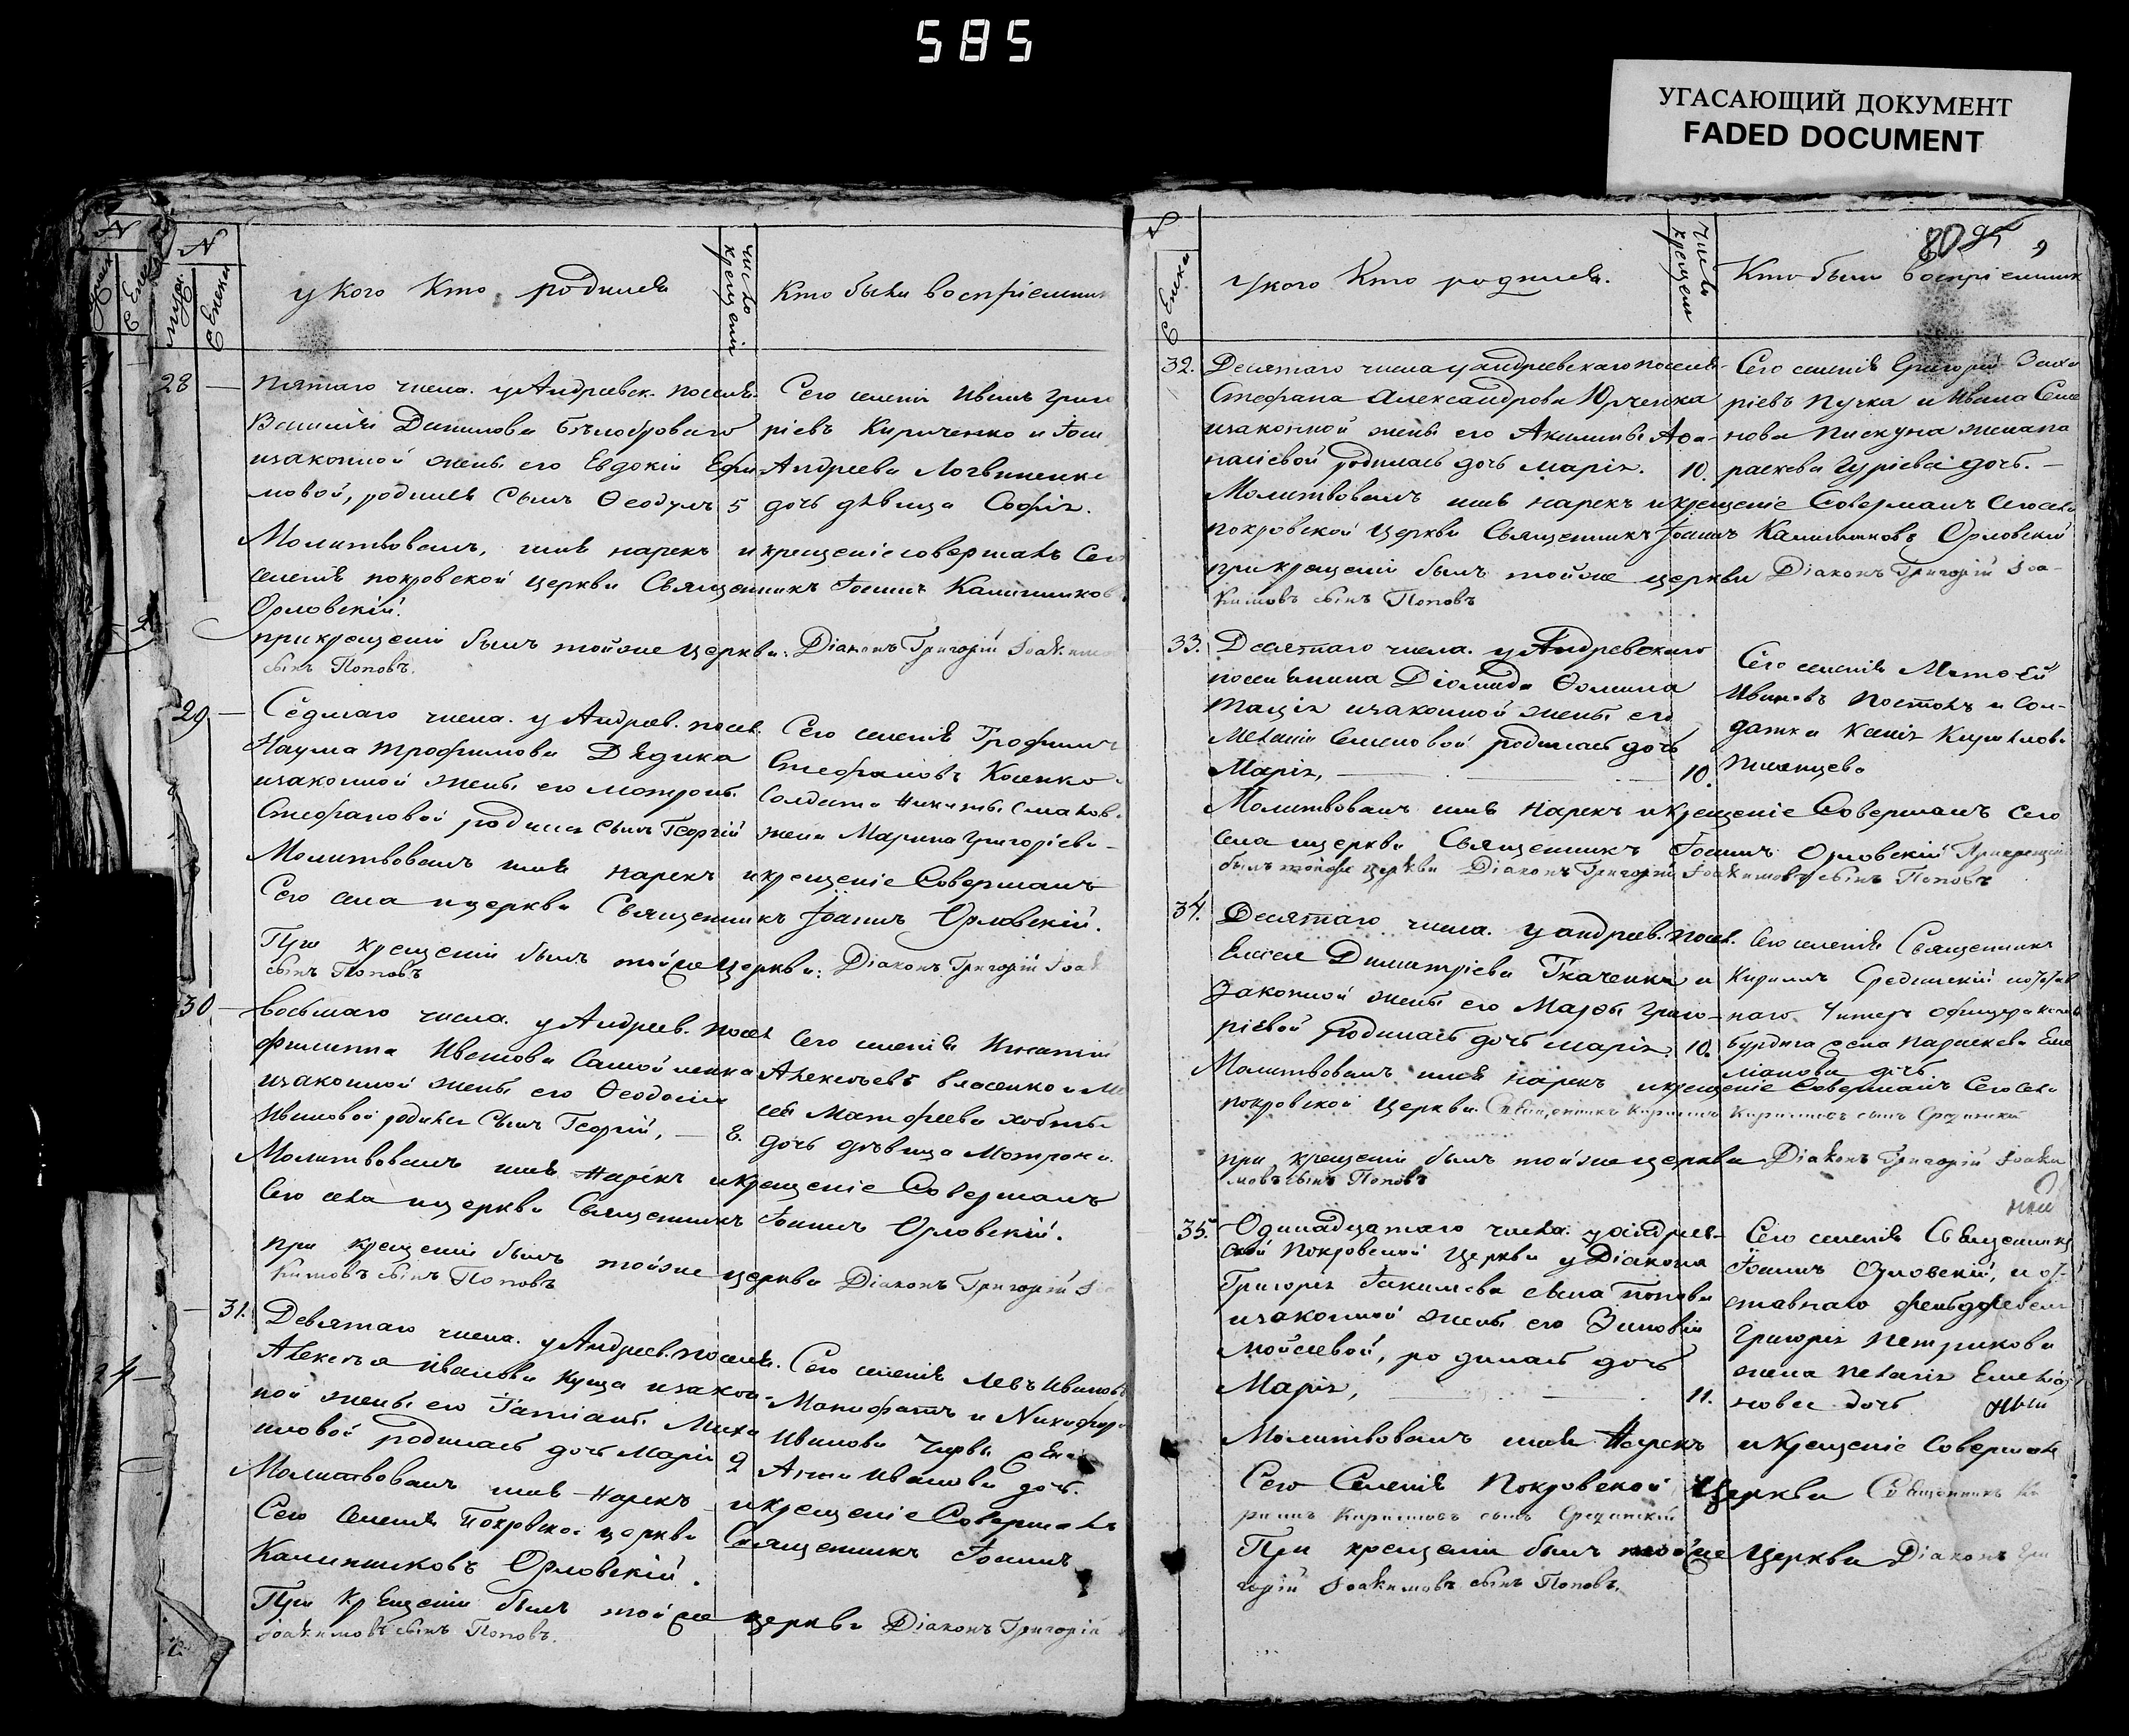 585
УГАСАЮЩИЙ ДОКУМЕНТ
FADED DOCUMENT
N
N
муж.
женска
у кого кто родился
число крещенія
кто были воспріемник
28 пятаго числа. у Андреевск. поселя.
Василія Данилова Бѣлоброваго
изаконной жены его Евдокіи Ефи
мовой, родился сынъ Ѳеодулъ 5
Сего селенія Иванъ Григо
ріевъ Кириченко и
Андреева Логвиненка
дочь дѣвица Софія.
Молитвовалъ, имя нарекъ и крещеніе совершалъ Сего
селенія покровской церкви Священникъ Іоаннъ Калинников
Орловскій.
при крещеніи былъ тойже церкви: Діаконъ Григорій Іоакимов
сынъ Поповъ.
29 Седмаго числа. у Андреев. посел.
Наума Трофимова Дядика
изаконной жены его Мотроны
Стефановой родился сынъ Георгій
Сего селенія Трофимъ
Стефановъ Косенко
Солдата Никиты
жена Марина Григоріева
Молитвовалъ имя нарекъ и крещеніе Совершалъ
Сего села и церкви Священникъ Іоаннъ Орловскій.
При крещеніи былъ тойже церкви: Діаконъ Григорій Іоак
сынъ Поповъ
30 восьмаго числа. у Андреев. посел
филиппа Иванова Самойленка
изаконной жены его Ѳеодосіи
Ивановой родился сынъ Георгій, 8.
Сего селенія Игнатій
Алексѣевъ Власенко и
Матфеева
дочь дѣвица Мотрона.
Молитвовалъ имя нарекъ и крещеніе Совершалъ
Сего села и церкви Священникъ Іоаннъ Орловскій.
при крещеніи былъ тойже церкви Діаконъ Григорій Іоа
кимовъ сынъ Поповъ
31. Девятаго числа. у Андреев. поселя.
Алексѣя Иванова Куща изакон
ной жены его Татіаны Миха
иловой родилась дочь Марія 9
Сего селенія Левъ Ивановъ
и Никифора
Иванова
Анна Иванова дочь.
Молитвовалъ имя нарекъ и крещеніе Совершалъ
Сего селенія Покровской церкви Священникъ Іоаннъ
Калинниковъ Орловскій.
При крещеніи былъ тойже церкви Діаконъ Григорій
Іоакимовъ сынъ Поповъ.
N
женска
у кого кто родился.
число крещен
Кто были воспріемник
80
32. Десятаго числа у андреевскаго поселя
Стефана Александрова Юрченка
изаконной жены его Акилины Аѳа-
насіевой родилась дочь Марія. 10.
Сего селенія Григорій Заха
ріевъ Пучка и Ивана Семе
нова Пискуна жена па
раскева Гуріева дочь.
Молитвовалъ имя нарекъ и крещеніе Совершалъ Сего села
покровской Церкви Священникъ Іоаннъ Калинниковъ Орловскій
при крещеніи былъ тойже церкви Діаконъ Григорій Іоа-
кимовъ сынъ Поповъ
33. Десятаго числа. у Андреевскаго
поселянина Діомида Ѳомина
изаконной жены его
Меланіи Семеновой родилась дочь
Марія, 10.
Сего селенія Матѳей
Ивановъ и Сол-
датка Ксенія Кирилова
Молитвовалъ имя нарекъ и крещеніе Совершалъ Сего
села и церкви Священникъ Іоаннъ Орловскій При крещеніи
былъ тойже церкви Діаконъ Григорій Іоакимовъ сынъ Поповъ
34. Десятаго числа. у андреев. посел.
Елисея Димитріева Ткаченка и
законной жены его Марфы Григо-
ріевой родилась дочь Марія. 10.
Сего селенія Священникъ
Кириллъ Срединскій и отстав
наго Унтеръ офицера
Бурдига жена Параскева Еме
ліанова дочь.
Молитвовалъ имя нарекъ и крещеніе Совершалъ Сего села
покровской Церкви Священникъ Кириллъ Кирилловъ сынъ Срединскій
при крещеніи былъ тойже церкви Діаконъ Григорій Іоаки
мовъ сынъ Поповъ
35. Одинадцатаго числа. у андреев-
ской Покровской Церкви у Діакона
Григорія Іакимова сына Попова
изаконной жены его Зиновіи
Мойсеевой, родилась дочь
Марія, 11.
Сего селенія Священникъ
Іоаннъ Орловскій, и от-
ставнаго фельдфебеля
Григорія Петрикова
жена Пелагія Емеліа
новая дочь
Молитвовалъ имя Нарекъ и крещеніе Совершалъ
Сего Селенія Покровской Церкви Священникъ Ки
риллъ Кирилловъ сынъ Срединскій
При крещеніи былъ тойже Церкви Діаконъ Гри
горій Іоакимовъ сынъ Поповъ.